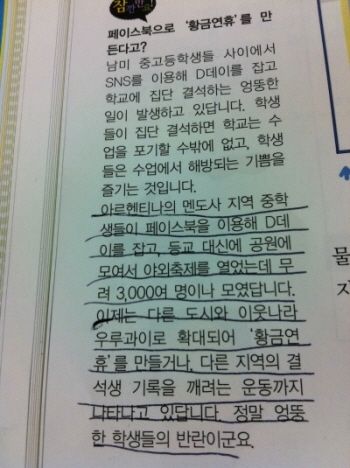 잠깐만!
페이스북으로 '황금연휴'를 만
든다고?
남미 중고등학생들 사이에서
SNS를 이용해 D데이를 잡고
학교에 집단 결석하는 엉뚱한
일이 발생하고 있답니다. 학생
들이 집단 결석하면 학교는 수
업을 포기할 수밖에 없고, 학생
들은 수업에서 해방되는 기쁨을
즐기는 것입니다.
아르헨티나의 멘도사 지역 중학
생들이 페이스북을 이용해 D데
이를 잡고, 등교 대신에 공원에
모여서 야외축제를 열었는데 무
려 3,000여 명이나 모였답니다.
이제는 다른 도시와 이웃나라
우루과이로 확대되어 '황금연
휴'를 만들거나, 다른 지역의 결
석생 기록을 깨려는 운동까지
나타나고 있답니다. 정말 엉뚱
한 학생들의 반란이군요.
물